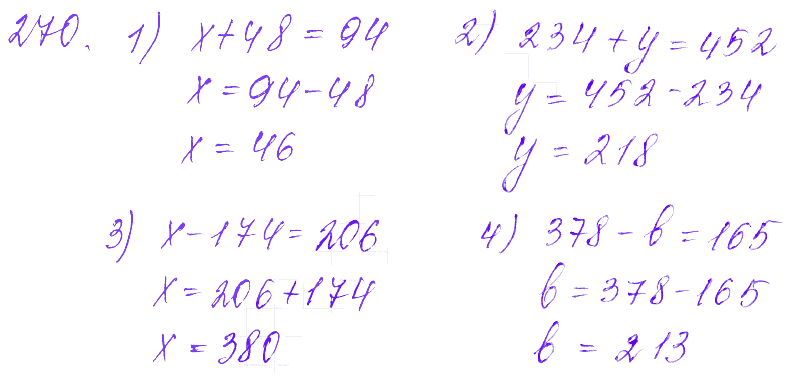 270. 1) x + 48 = 94
x = 94 - 48
x = 46
2) 234 + y = 452
y = 452 - 234
y = 218
3) x - 174 = 206
x = 206 + 174
x = 380
4) 378 - b = 165
b = 378 - 165
b = 213